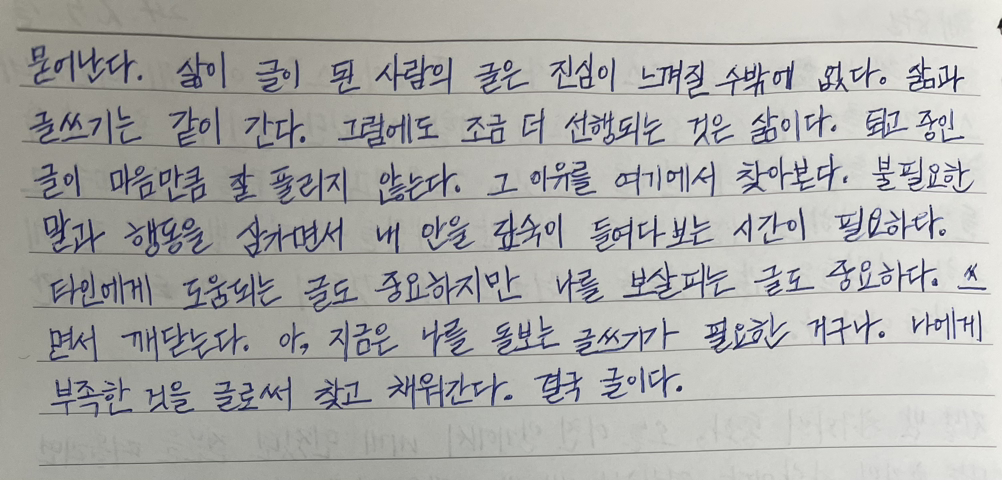 묻어난다. 삶이 글이 된 사람의 글은 진심이 느껴질 수밖에 없다. 삶과
글쓰기는 같이 간다. 그럼에도 조금 더 선행되는 것은 삶이다. 퇴고 중인
글이 마음만큼 잘 풀리지 않는다. 그 이유를 여기에서 찾아본다. 불필요한
말과 행동을 삼가면서 내 안을 깊숙이 들여다보는 시간이 필요하다.
타인에게 도움되는 글도 중요하지만 나를 보살피는 글도 중요하다. 쓰
면서 깨닫는다. 아, 지금은 나를 돌보는 글쓰기가 필요한 거구나. 나에게
부족한 것을 글로써 찾고 채워간다. 결국 글이다.